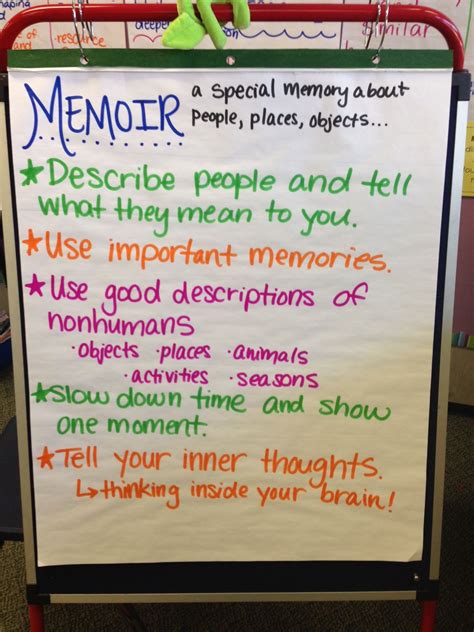 shaping
of resource
deeper
Similar
MEMOIR a special memory about
people, places, objects...
★Describe people and tell
what they mean to you.
★Use important memories.
★Use good descriptions of
nonhumans
·objects ·places ·animals
·activities ·seasons
★Slow down time and show
one moment.
★Tell your inner thoughts.
↳thinking inside your brain!